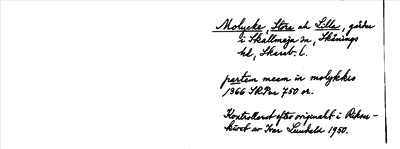 Molycke, Stora och Lilla, gårdar
i Skallmeja sn, Skånings
hd, Skarab. l.
partem meam in molykkis
1366 SRPer 750 or.
Kontrollerat efter originalet i Riksar-
kivet av Ivar Lundahl 1950.